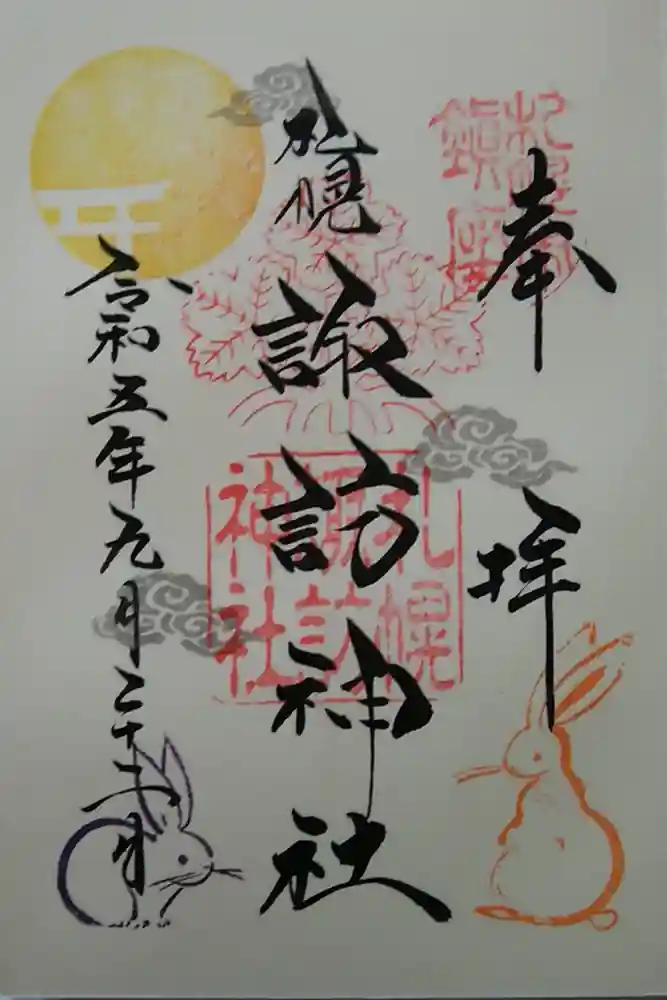 札幌
鎮座
奉拝
札幌
諏訪神社
札幌
諏訪
神社
令和五年九月二十九日